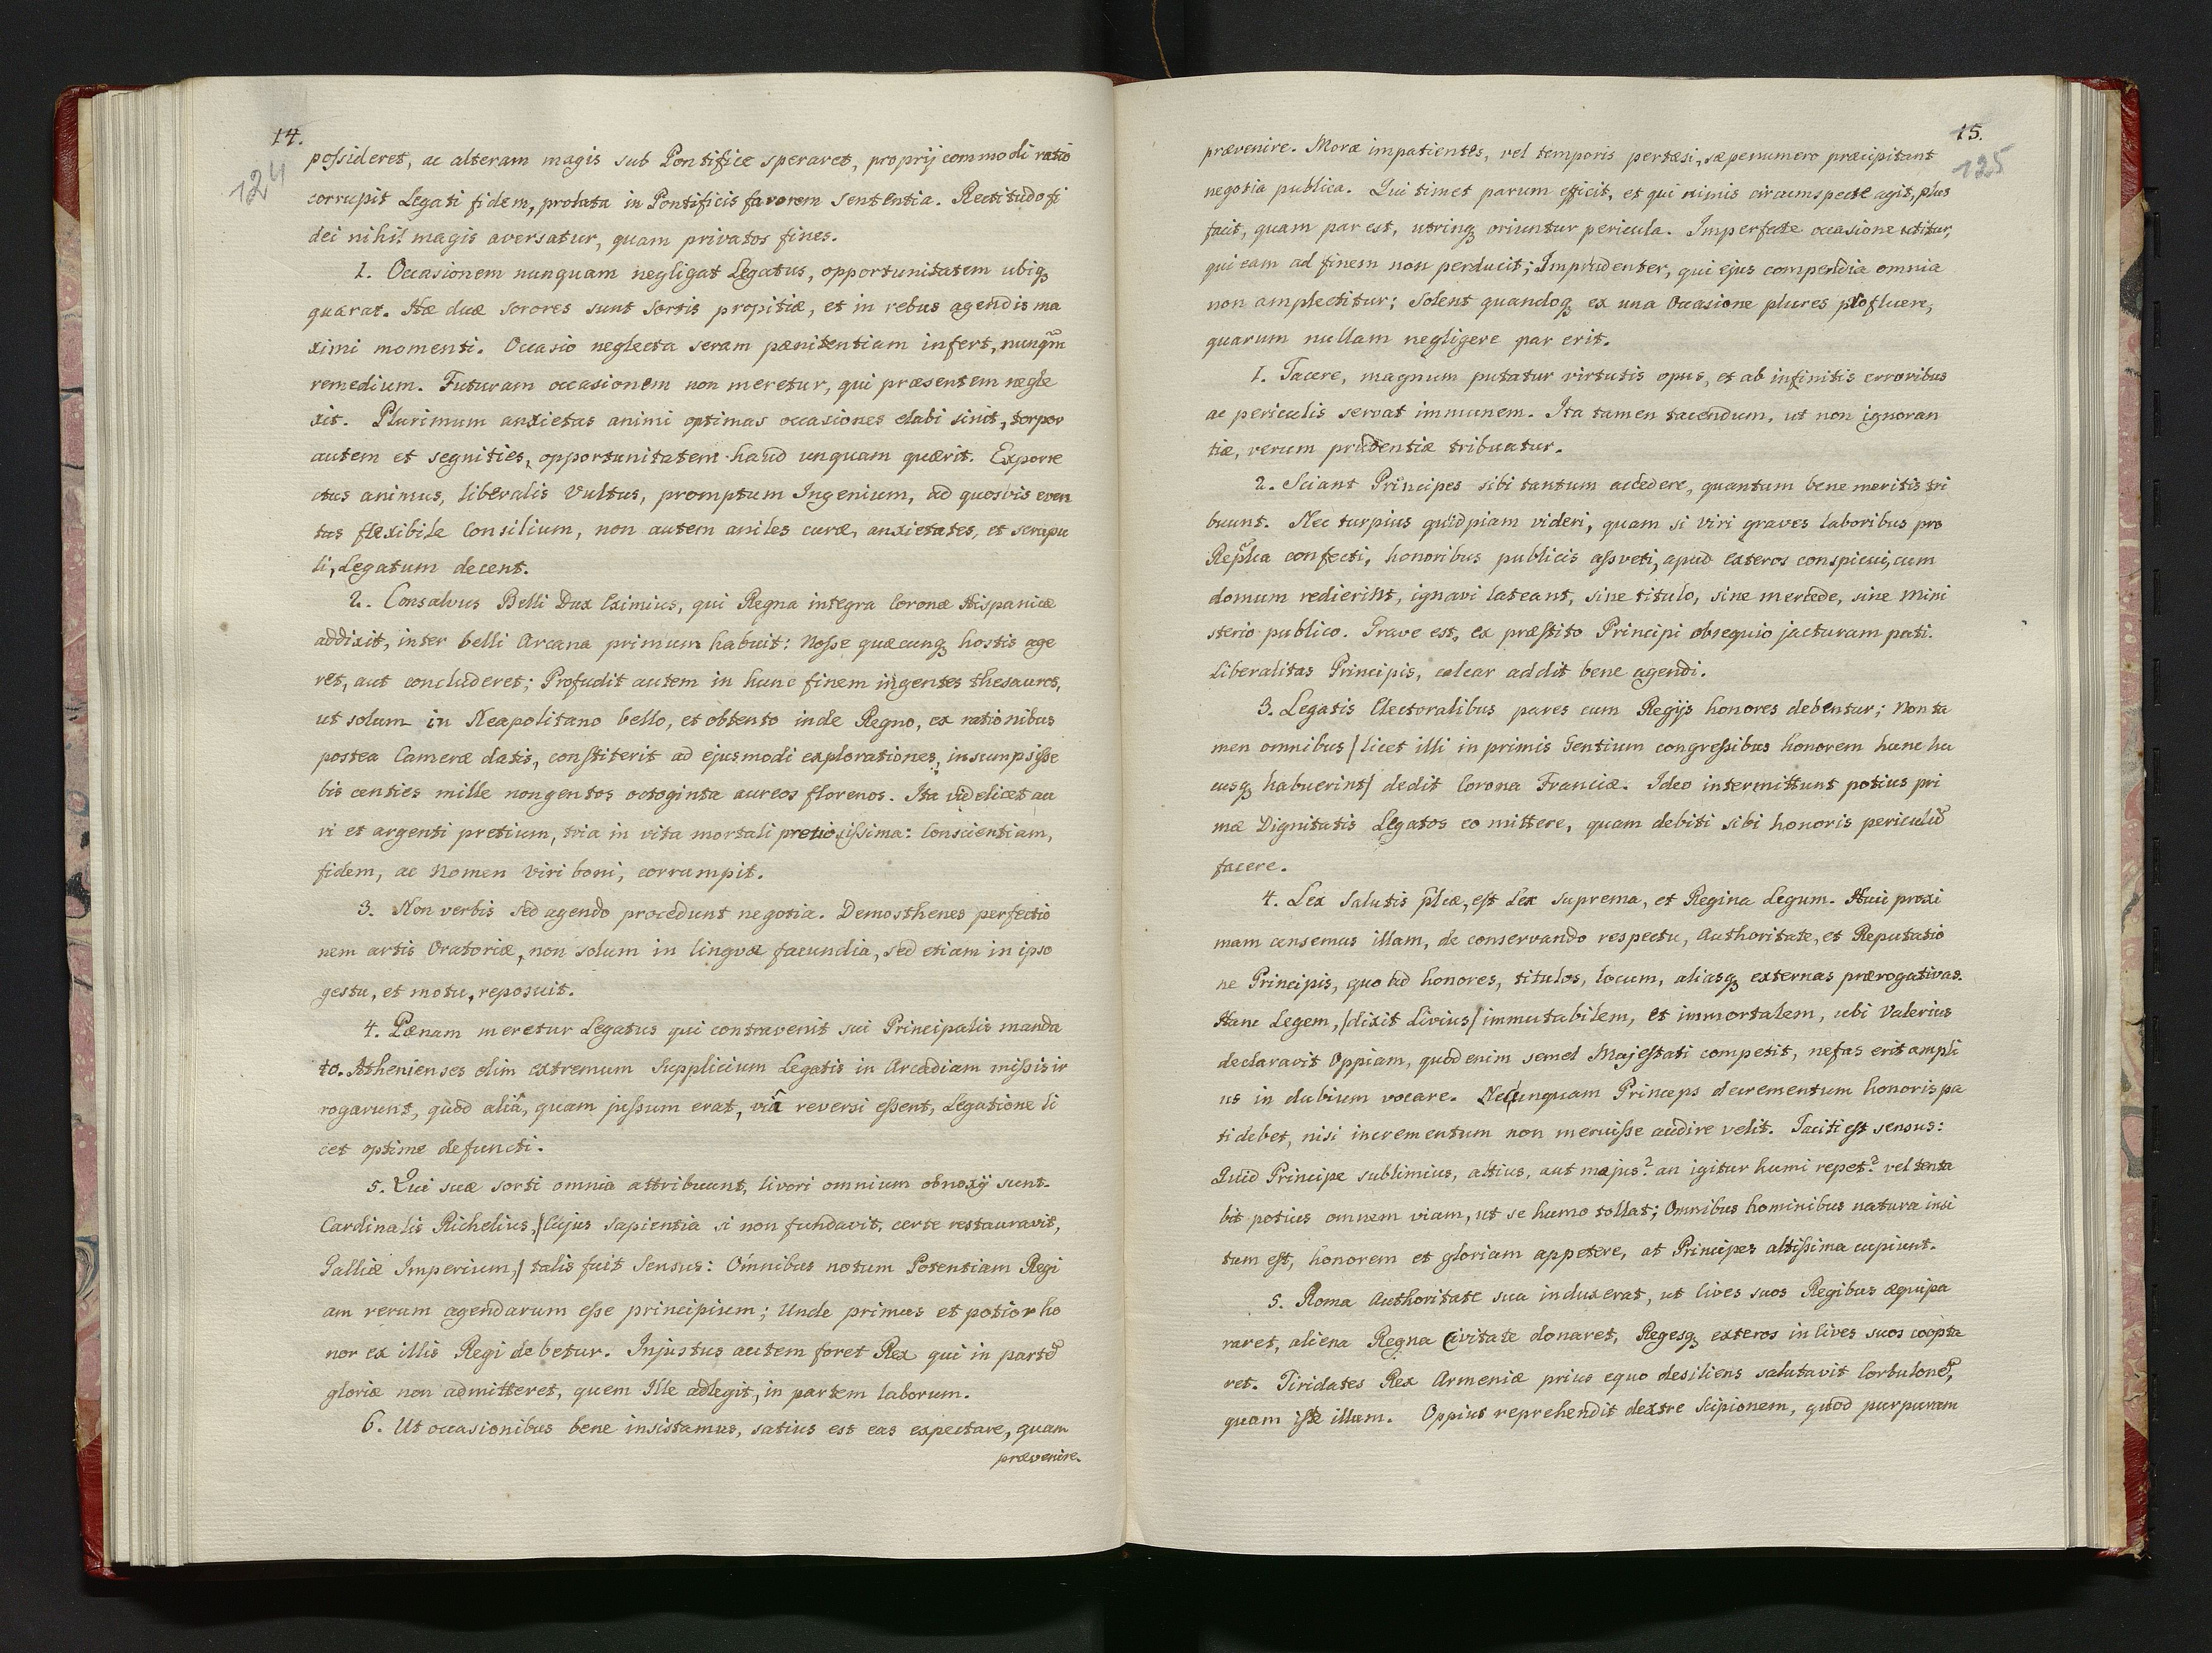 14.
124
possideret, ac alteram magis sub Pontifice speraret, proprij commodi ratio
corrupit Legati fidem, prolata in Pontificis favorem sententia. Rectitudo fi
dei nihil magis aversatur, quam privatos fines.
1. Occasionem nunquam negligat Legatus, opportunitatem ubiqꝫ
quærat. Hæ duæ sorores sunt sortis propitiæ, et in rebus agendis ma
ximi momenti. Occasio neglecta seram pænitentiam infert, nunqm̃
remedium. Futuram occasionem non meretur, qui præsentem negle
xit. Plurimum anxietas animi optimas occasiones elabi sinit, torpor
autem et segnities, opportunitatem haud unquam quærit. Exporre
ctus animus, liberalis Vultus, promptum Ingenium, ad quosvis even
tus flexibile Consilium, non autem aniles curæ, anxietates, et scrupu
li, Legatum decent.
2. Consalvus Belli Dux Eximius, qui Regna integra Coronæ Hispanicæ
addixit, inter belli Arcana primum habuit: Nosse quæcunqꝫ hostis age
ret, aut concluderet; Profudit autem in hunc finem ingentes thesauros,
ut solum in Neapolitano bello, et obtento inde Regno, ex rationibus
postea Cameræ datis, constiterit ad ejusmodi explorationes, insumpsisse
bis centies mille nongentos octoginta aureos florenos. Ita videlicet au
ri et argenti pretium, tria in vita mortali pretiosissima: Conscientiam,
fidem, ac Nomen Viri boni, corrumpit.
3. Non verbis sed agendo procedunt negotia. Demosthenes perfectio
nem artis Oratoriæ, non solum in lingvæ facundia, sed etiam in ipso
gestu, et motu, reposuit.
4. Pænam meretur Legatus qui contravenit sui Principalis manda
to. Athenienses olim extremum supplicium Legatis in Arcadiam missis ir
rogarunt, quod aliâ, quam jussum erat, viâ reversi essent, Legatione li
cet optime defuncti.
5. Qui suæ sorti omnia attribuunt, livori omnium obnoxij sunt.
Cardinalis Richelius, /Cujus sapientia si non fundavit, certe restauravit,
Galliæ Imperium,/ talis fuit Sensus: Omnibus notum Potentiam Regi
am rerum agendarum esse principium; Unde primus et potior ho
nor ex illis Regi debetur. Injustus autem foret Rex qui in partẽ
gloriæ non admitteret, quem Ille adlegit, in partem laborum.
6. Ut occasionibus bene insistamus, satius est eas expectare, quam
prævenire.
15.
125
prævenire. Moræ impatientes, vel temporis pertæsi, sæpenumero præcipitant
negotia publica. Qui timet parum efficit, et qui nimis circumspecte agit, plus
facit, quam par est, utrinqꝫ oriuntur pericula. Imperfecte occasione utitur,
qui eam ad finem non perducit; Imprudenter, qui ejus compendia omnia
non amplectitur; Solent quandoqꝫ ex una Occasione plures profluere,
quarum nullam negligere par erit.
1. Tacere, magnum putatur virtutis opus, et ab infinitis erroribus
ac periculis servat immunem. Ita tamen tacendum, ut non ignoran
tiæ, verum prudentiæ tribuatur.
2. Sciant Principes sibi tantum accedere, quantum bene meritis tri
buunt. Nec turpius quidpiam videri, quam si viri graves laboribus pro
Rep̃lca confecti, honoribus publicis assveti, apud Exteros conspicui, cum
domum redierint, ignavi lateant, sine titulo, sine mercede, sine Mini
sterio publico. Grave est, ex præstito Principi obsequio jacturam pati.
Liberalitas Principis, calcar addit bene agendi.
3. Legatis Electoralibus pares cum Regijs honores debentur; Non ta
men omnibus /licet illi in primis Gentium congressibus honorem hunc hu
cusqꝫ habuerint/ dedit Corona Franciæ. Ideo intermittunt potius pri
mæ Dignitatis Legatos eo mittere, quam debiti sibi honoris periculũ
facere.
4. Lex Salutis p̃lcæ, est Lex suprema, et Regina Legum. Huic proxi
mam censemus illam, de conservando respectu, Authoritate, et Reputatio
ne Principis, quoad honores, titulos, locum, aliasqꝫ externas prærogativas.
Hanc Legem, /dixit Livius/ immutabilem, et immortalem, ubi Valerius
declaravit Oppiam, quod enim semel Majestati competit, nefas erit ampli
us in dubium vocare. Nequnquam Princeps decrementum honoris pa
ti debet, nisi incrementum non meruisse audire velit. Taciti est sensus:
Quid Principe sublimius, altius, aut majus? an igitur humi repet? vel tenta
bit potius omnem viam, ut se humo tollat; Omnibus hominibus natura insi
tum est, honorem et gloriam appetere, at Principes altissima cupiunt.
5. Roma Authoritate sua induxerat, ut Cives suos Regibus æquipa
raret, aliena Regna Civitate donaret, Regesqꝫ exteros in Cives suos coopta
ret. Tiridates Rex Armeniæ prius equo desiliens salutavit Corbulonẽ,
quam iste illum. Oppius reprehendit dextre Scipionem, quod purpuram